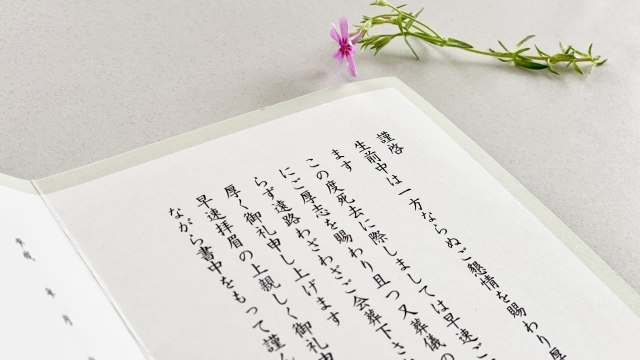 謹啓
生前中は一方ならぬご懇情を賜わり厚
ます
この度死去に際しましては早速ご
にご厚志を賜わり且つ又葬儀の
らず遠路わざわざご会葬下さ
厚く御礼申し上げます
早速拝眉の上親しく御礼申
ながら書中をもって謹ん